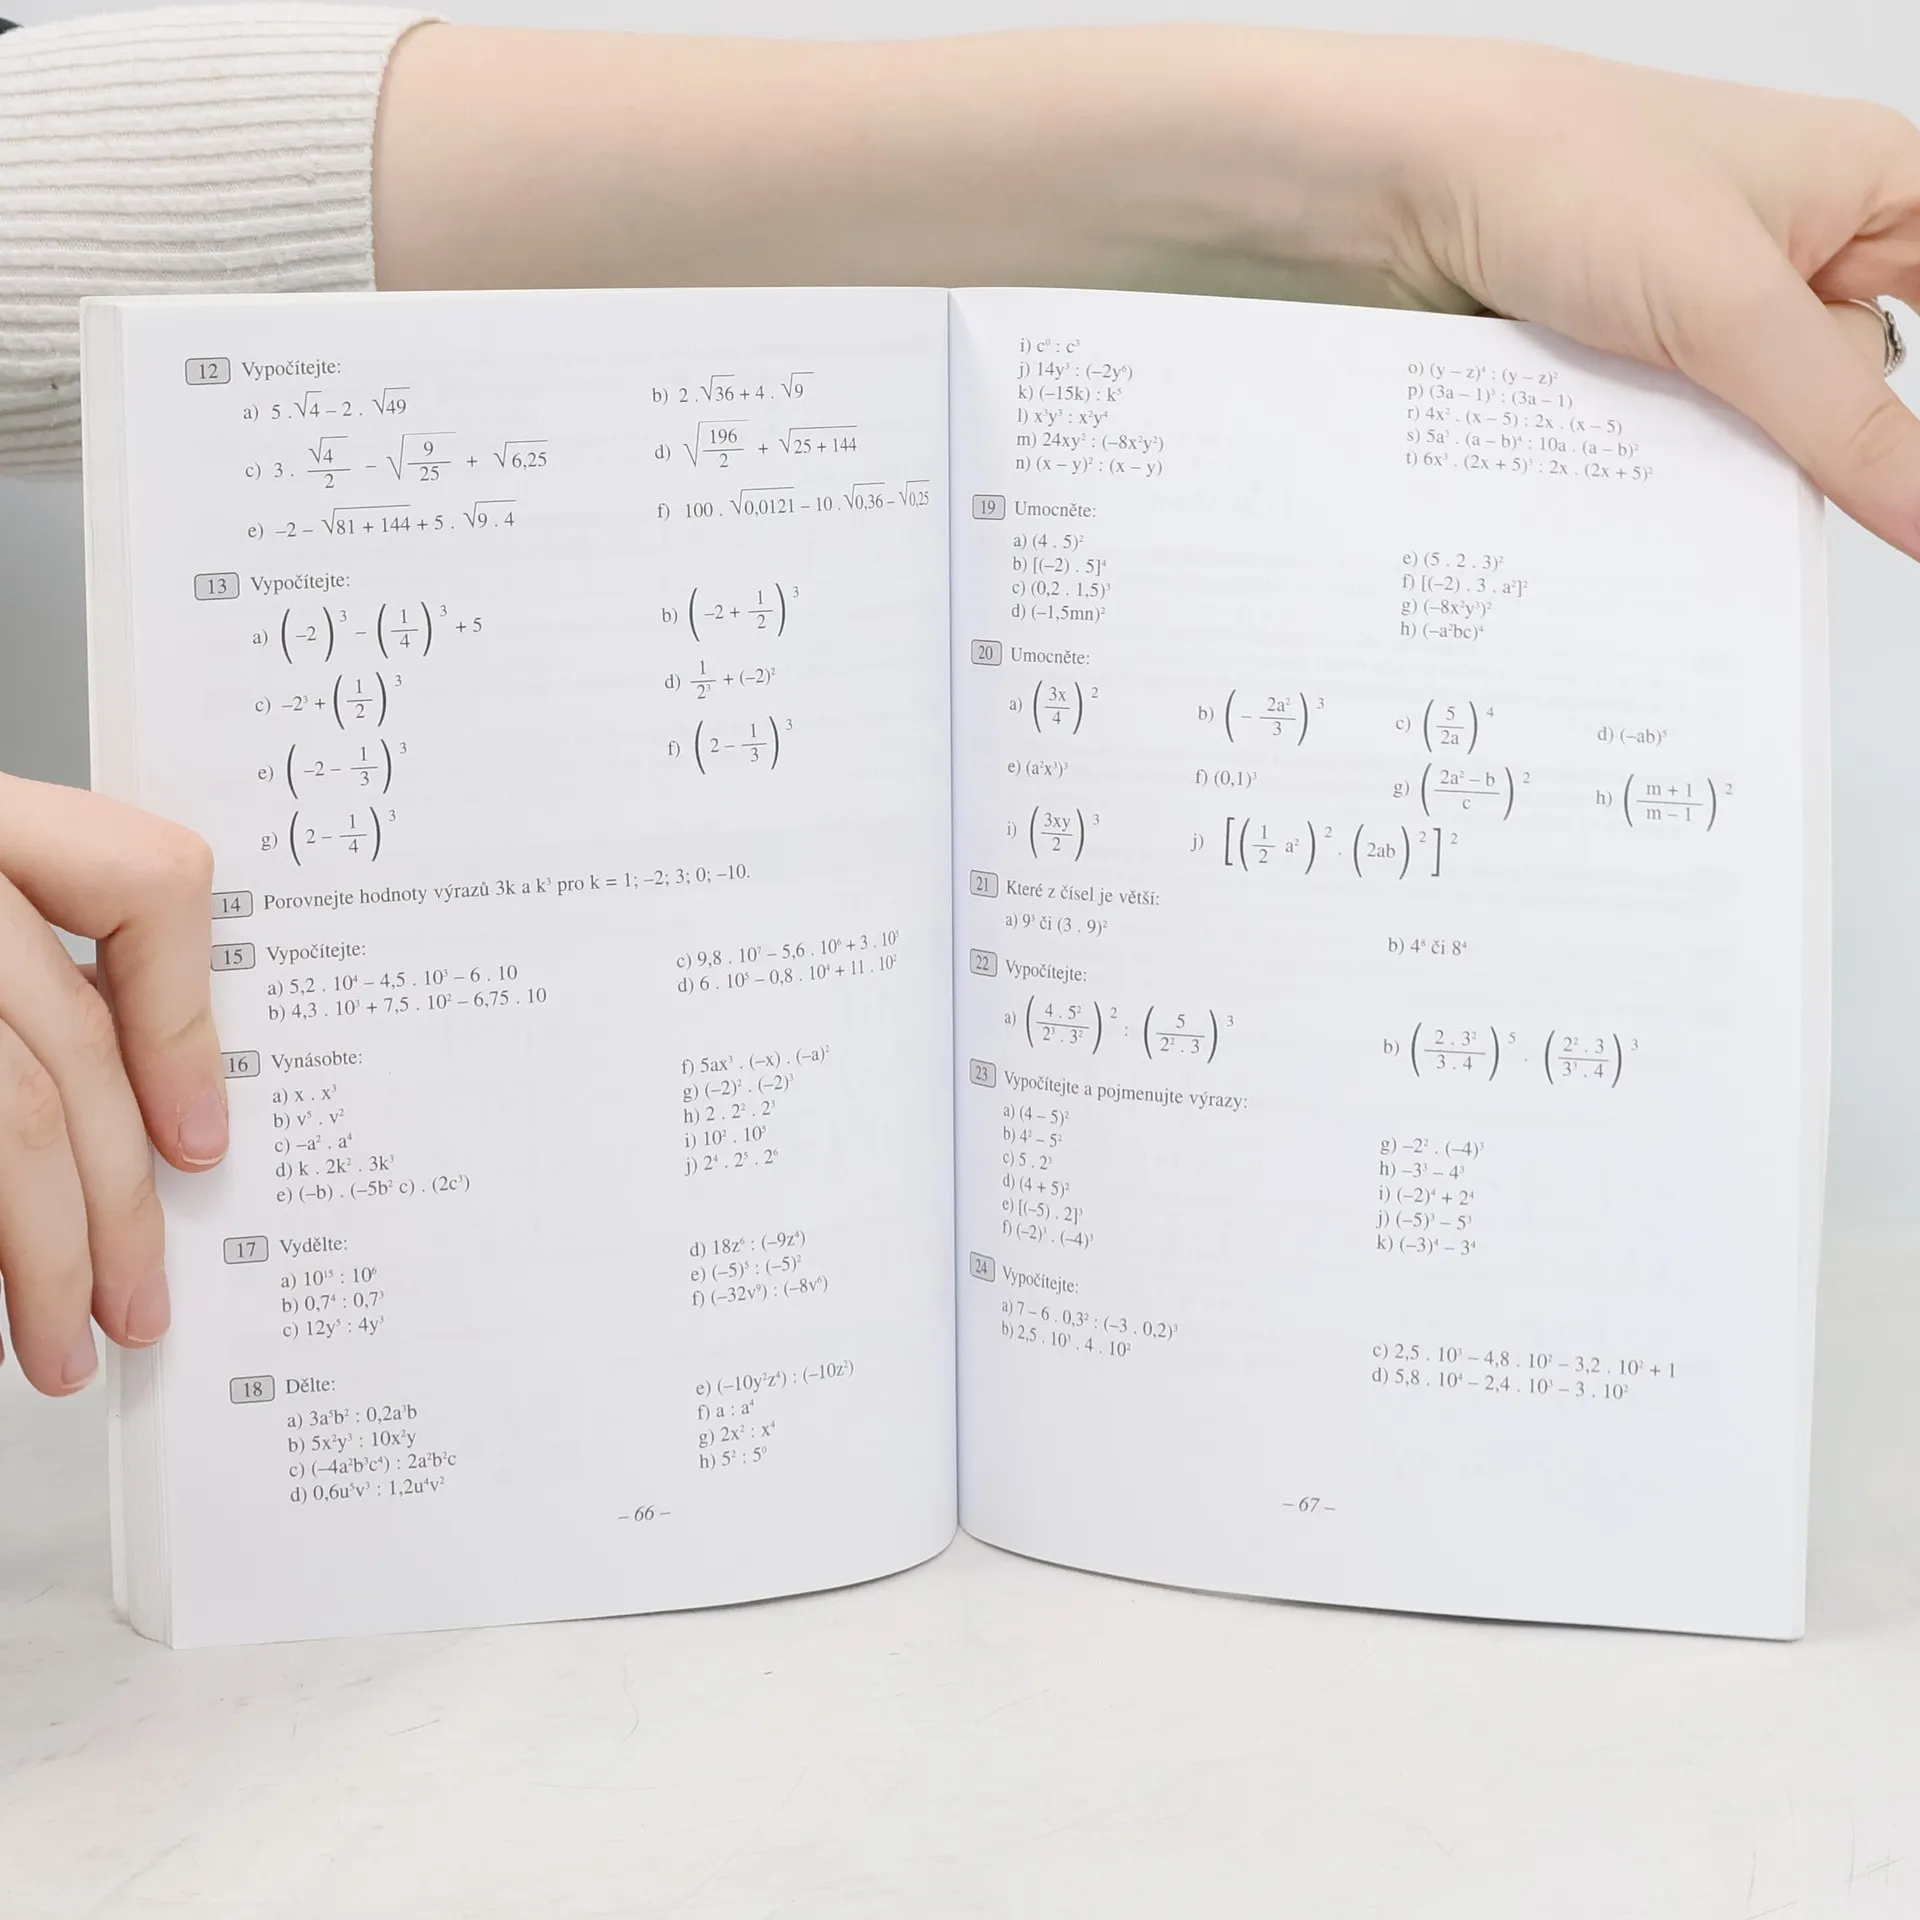 12 Vypočítejte:
a) 5 . √4 – 2 . √49
b) 2 . √36 + 4 . √9
c) 3 . √4/2 – √(9/25) + √6,25
d) √(196/2) + √(25 + 144)
e) –2 – √(81 + 144) + 5 . √(9 . 4)
f) 100 . √0,0121 – 10 . √0,36 – √0,25
13 Vypočítejte:
a) (–2)³ – (1/4)³ + 5
b) (–2 + 1/2)³
c) –2³ + (1/2)³
d) 1/2³ + (–2)²
e) (–2 – 1/3)³
f) (2 – 1/3)³
g) (2 – 1/4)³
14 Porovnejte hodnoty výrazů 3k a k³ pro k = 1; –2; 3; 0; –10.
15 Vypočítejte:
a) 5,2 . 10⁴ – 4,5 . 10³ – 6 . 10
b) 4,3 . 10³ + 7,5 . 10² – 6,75 . 10
c) 9,8 . 10⁷ – 5,6 . 10⁶ + 3 . 10⁵
d) 6 . 10⁵ – 0,8 . 10⁴ + 11 . 10²
16 Vynásobte:
a) x . x³
b) v⁵ . v²
c) –a² . a⁴
d) k . 2k² . 3k³
e) (–b) . (–5b² c) . (2c³)
f) 5ax³ . (–x) . (–a)²
g) (–2)² . (–2)³
h) 2 . 2² . 2³
i) 10² . 10⁵
j) 2⁴ . 2⁵ . 2⁶
17 Vydělte:
a) 10¹⁵ : 10⁶
b) 0,7⁴ : 0,7³
c) 12y⁵ : 4y³
d) 18z⁶ : (–9z⁴)
e) (–5)⁵ : (–5)²
f) (–32v⁹) : (–8v⁶)
18 Dělte:
a) 3a⁵b² : 0,2a³b
b) 5x²y³ : 10x²y
c) (–4a²b³c⁴) : 2a²b²c
d) 0,6u⁵v³ : 1,2u⁴v²
e) (–10y²z⁴) : (–10z²)
f) a : a⁴
g) 2x² : x⁴
h) 5² : 5⁰
– 66 –
i) c⁰ : c³
j) 14y³ : (–2y⁶)
k) (–15k) : k⁵
l) x³y³ : x²y⁴
m) 24xy² : (–8x²y²)
n) (x – y)² : (x – y)
o) (y – z)⁴ : (y – z)²
p) (3a – 1)³ : (3a – 1)
r) 4x² . (x – 5) : 2x . (x – 5)
s) 5a³ . (a – b)⁴ : 10a . (a – b)²
t) 6x³ . (2x + 5)³ : 2x . (2x + 5)²
19 Umocněte:
a) (4 . 5)²
b) [(–2) . 5]⁴
c) (0,2 . 1,5)³
d) (–1,5mn)²
e) (5 . 2 . 3)²
f) [(–2) . 3 . a²]²
g) (–8x²y³)²
h) (–a²bc)⁴
20 Umocněte:
a) (3x/4)²
b) (– 2a²/3)³
c) (5/2a)⁴
d) (–ab)⁵
e) (a²x³)³
f) (0,1)³
g) ((2a² – b)/c)²
h) ((m + 1)/(m – 1))²
i) (3xy/2)³
j) [(1/2 a²)² . (2ab)²]²
21 Které z čísel je větší:
a) 9³ či (3 . 9)²
b) 4⁸ či 8⁴
22 Vypočítejte:
a) (4 . 5²/2³ . 3²)² : (5/2² . 3)³
b) (2 . 3²/3 . 4)⁵ . (2² . 3/3³ . 4)³
23 Vypočítejte a pojmenujte výrazy:
a) (4 – 5)²
b) 4² – 5²
c) 5 . 2³
d) (4 + 5)²
e) [(–5) . 2]³
f) (–2)³ . (–4)³
g) –2² . (–4)³
h) –3³ – 4³
i) (–2)⁴ + 2⁴
j) (–5)³ – 5³
k) (–3)⁴ – 3⁴
24 Vypočítejte:
a) 7 – 6 . 0,3² : (–3 . 0,2)³
b) 2,5 . 10³ . 4 . 10²
c) 2,5 . 10³ – 4,8 . 10² – 3,2 . 10² + 1
d) 5,8 . 10⁴ – 2,4 . 10³ – 3 . 10²
– 67 –